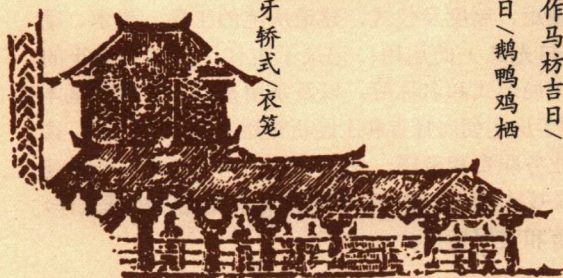 作马枋吉日/
日/鹅鸭鸡栖
牙轿式/衣笼